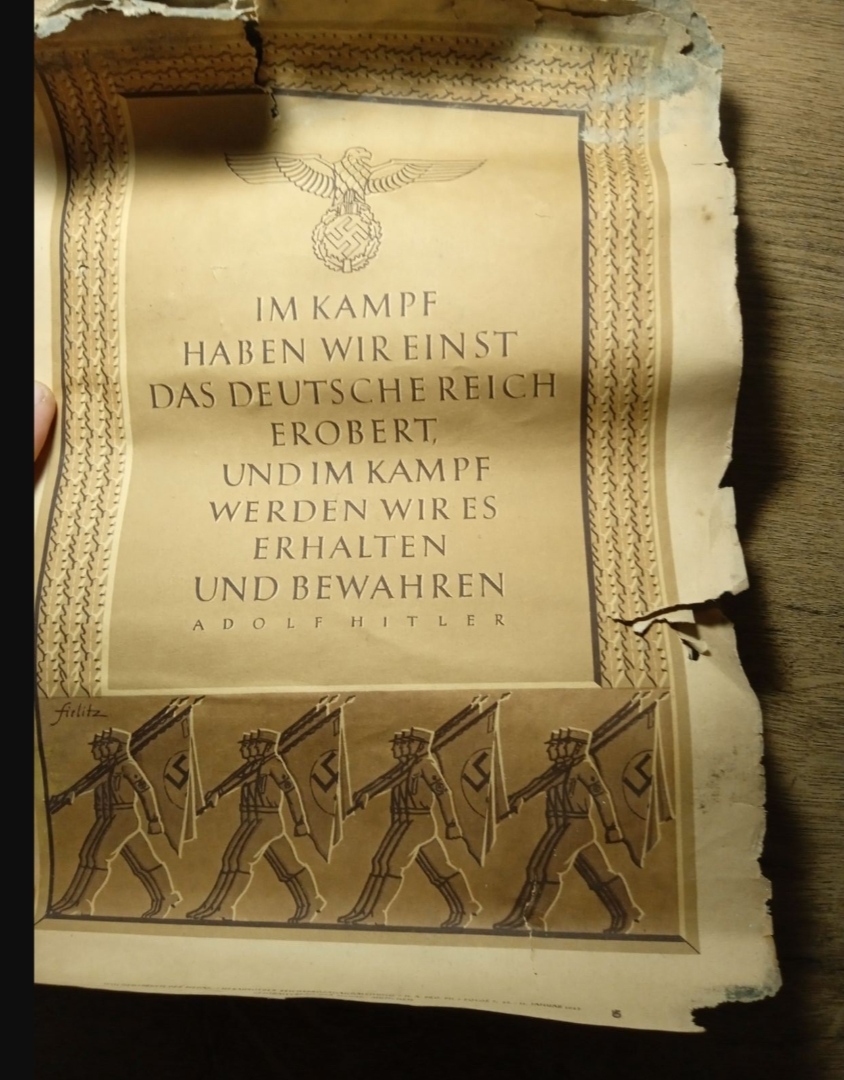 IM KAMPF
HABEN WIR EINST
DAS DEUTSCHE REICH
EROBERT,
UND IM KAMPF
WERDEN WIR ES
ERHALTEN
UND BEWAHREN
ADOLF HITLER
fielitz